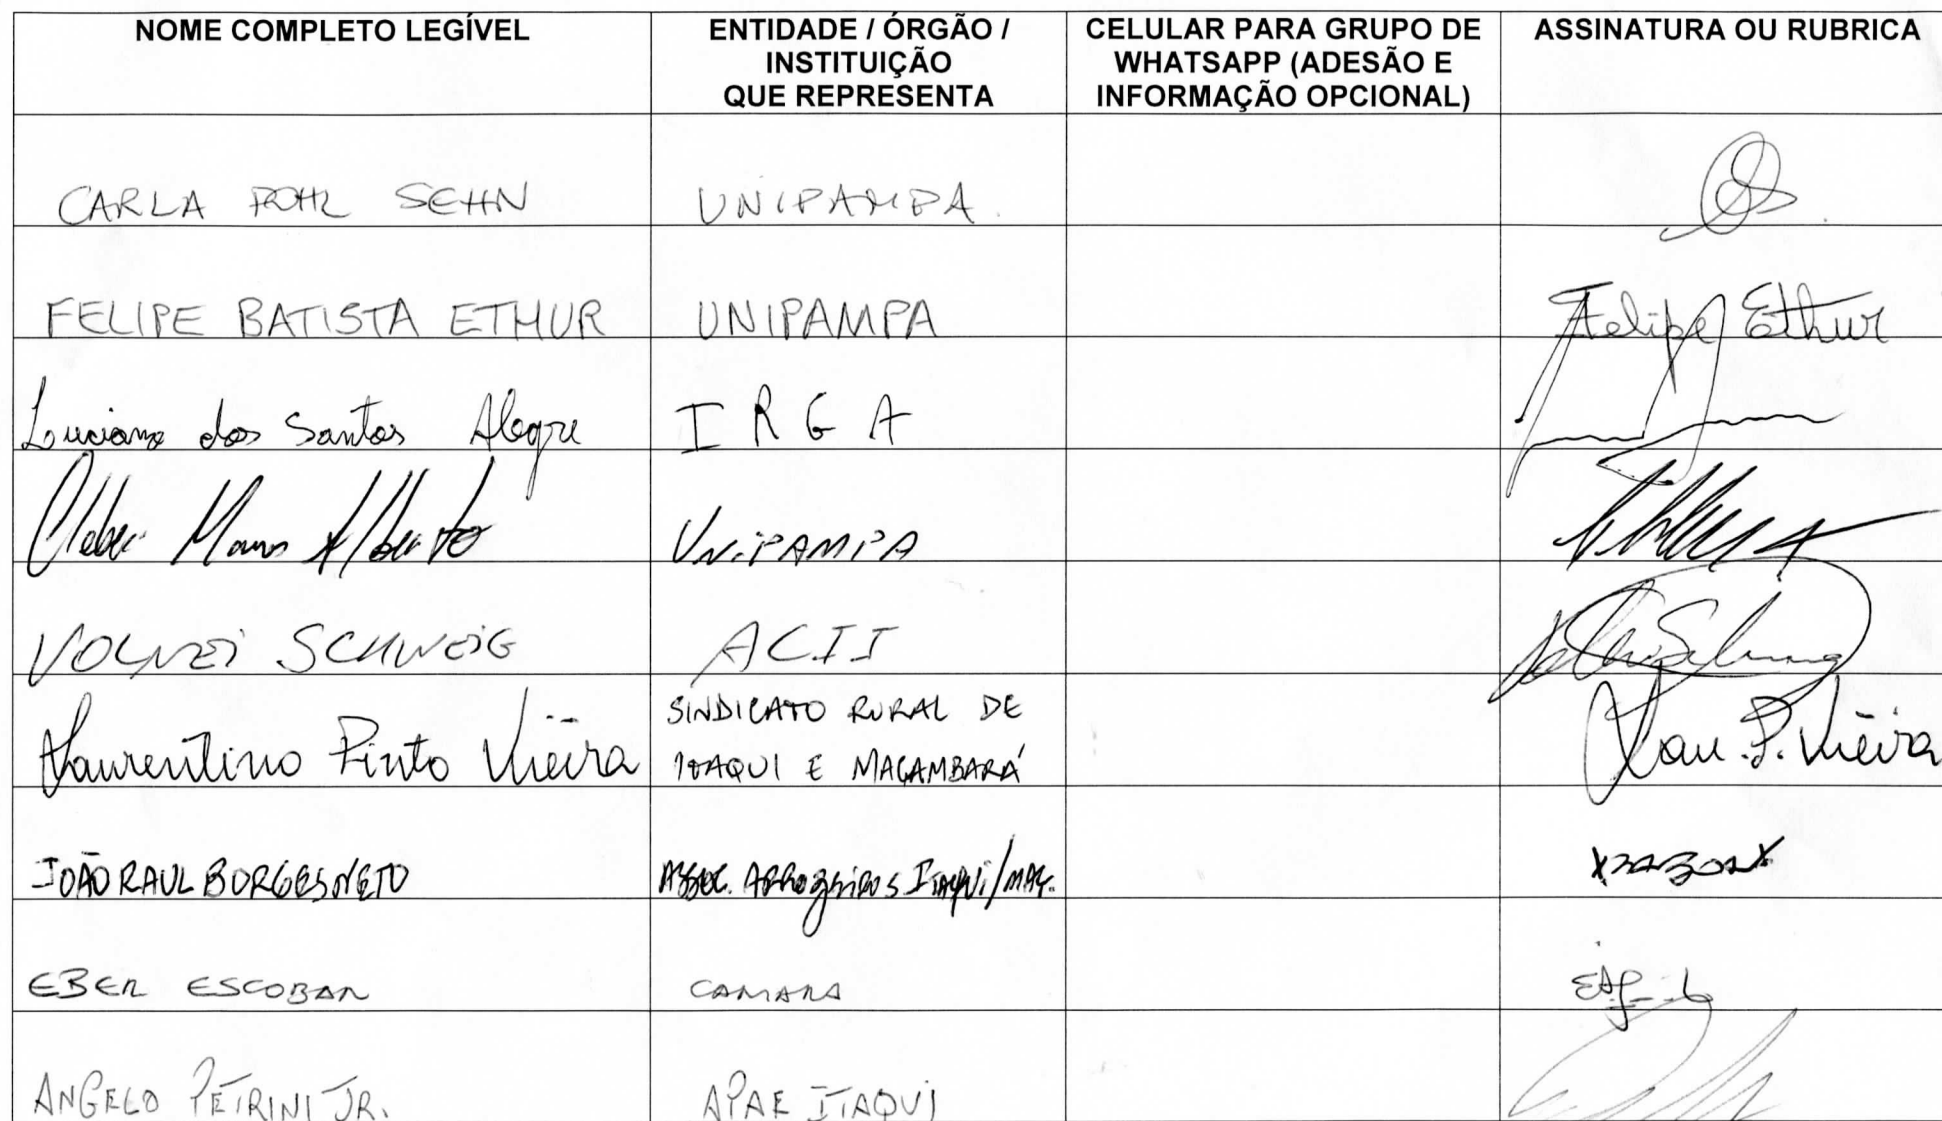 NOME COMPLETO LEGÍVEL
ENTIDADE / ÓRGÃO /
INSTITUIÇÃO
QUE REPRESENTA
CELULAR PARA GRUPO DE
WHATSAPP (ADESÃO E
INFORMAÇÃO OPCIONAL)
ASSINATURA OU RUBRICA
CARLA POHL SEHN
UNIPAMPA.
FELIPE BATISTA ETHUR
UNIPAMPA
Felipe Ethur
Luciano dos Santos Alegre
I R G A
Cleber Alberto
UNIPAMPA
VOLNEI SCHWEIG
ACII
Laurentino Pinto Vieira
SINDICATO RURAL DE
ITAQUI E MAÇAMBARÁ
Lau. P. Vieira
JOÃO RAUL BORGES NETO
ASSOC. ARROZEIROS ITAQUI/MAÇ.
EBER ESCOBAR
CAMARA
ANGELO PETRINI JR.
APAE ITAQUI